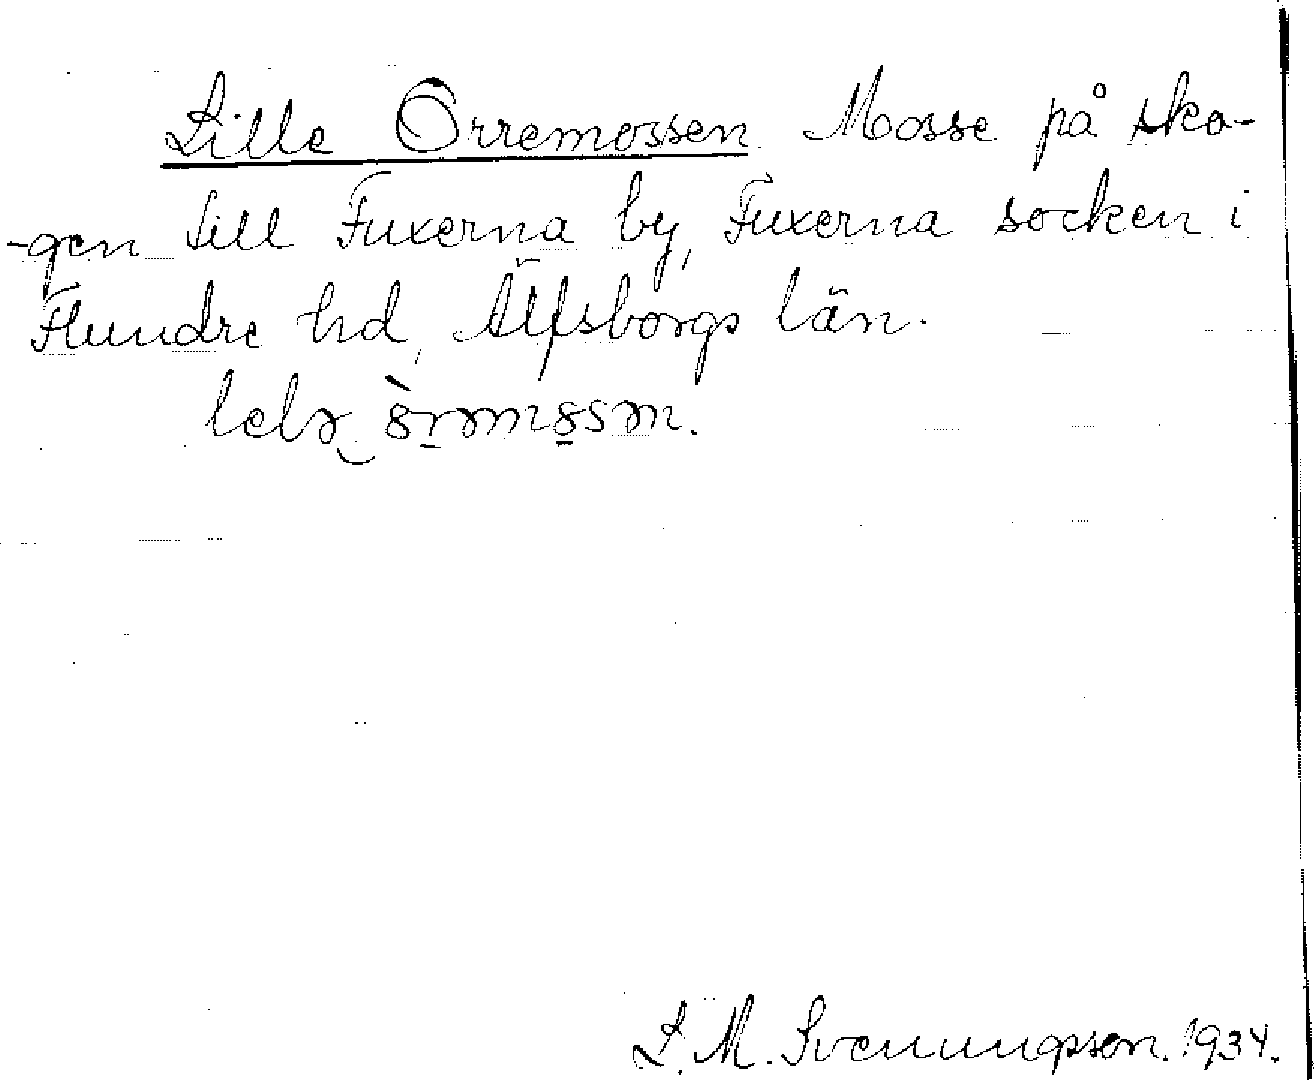 Lille Orremossen. Mosse på sko-
-gen till Fuxerna by, Fuxerna socken i
Flundre hd, Älfsborgs län.
L. M. Svenungsson. 1934.